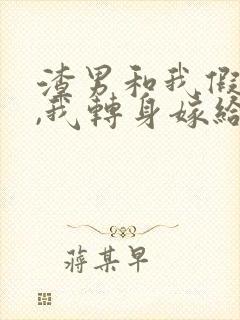 渣男和我假
,我轉身嫁給
蔣某早